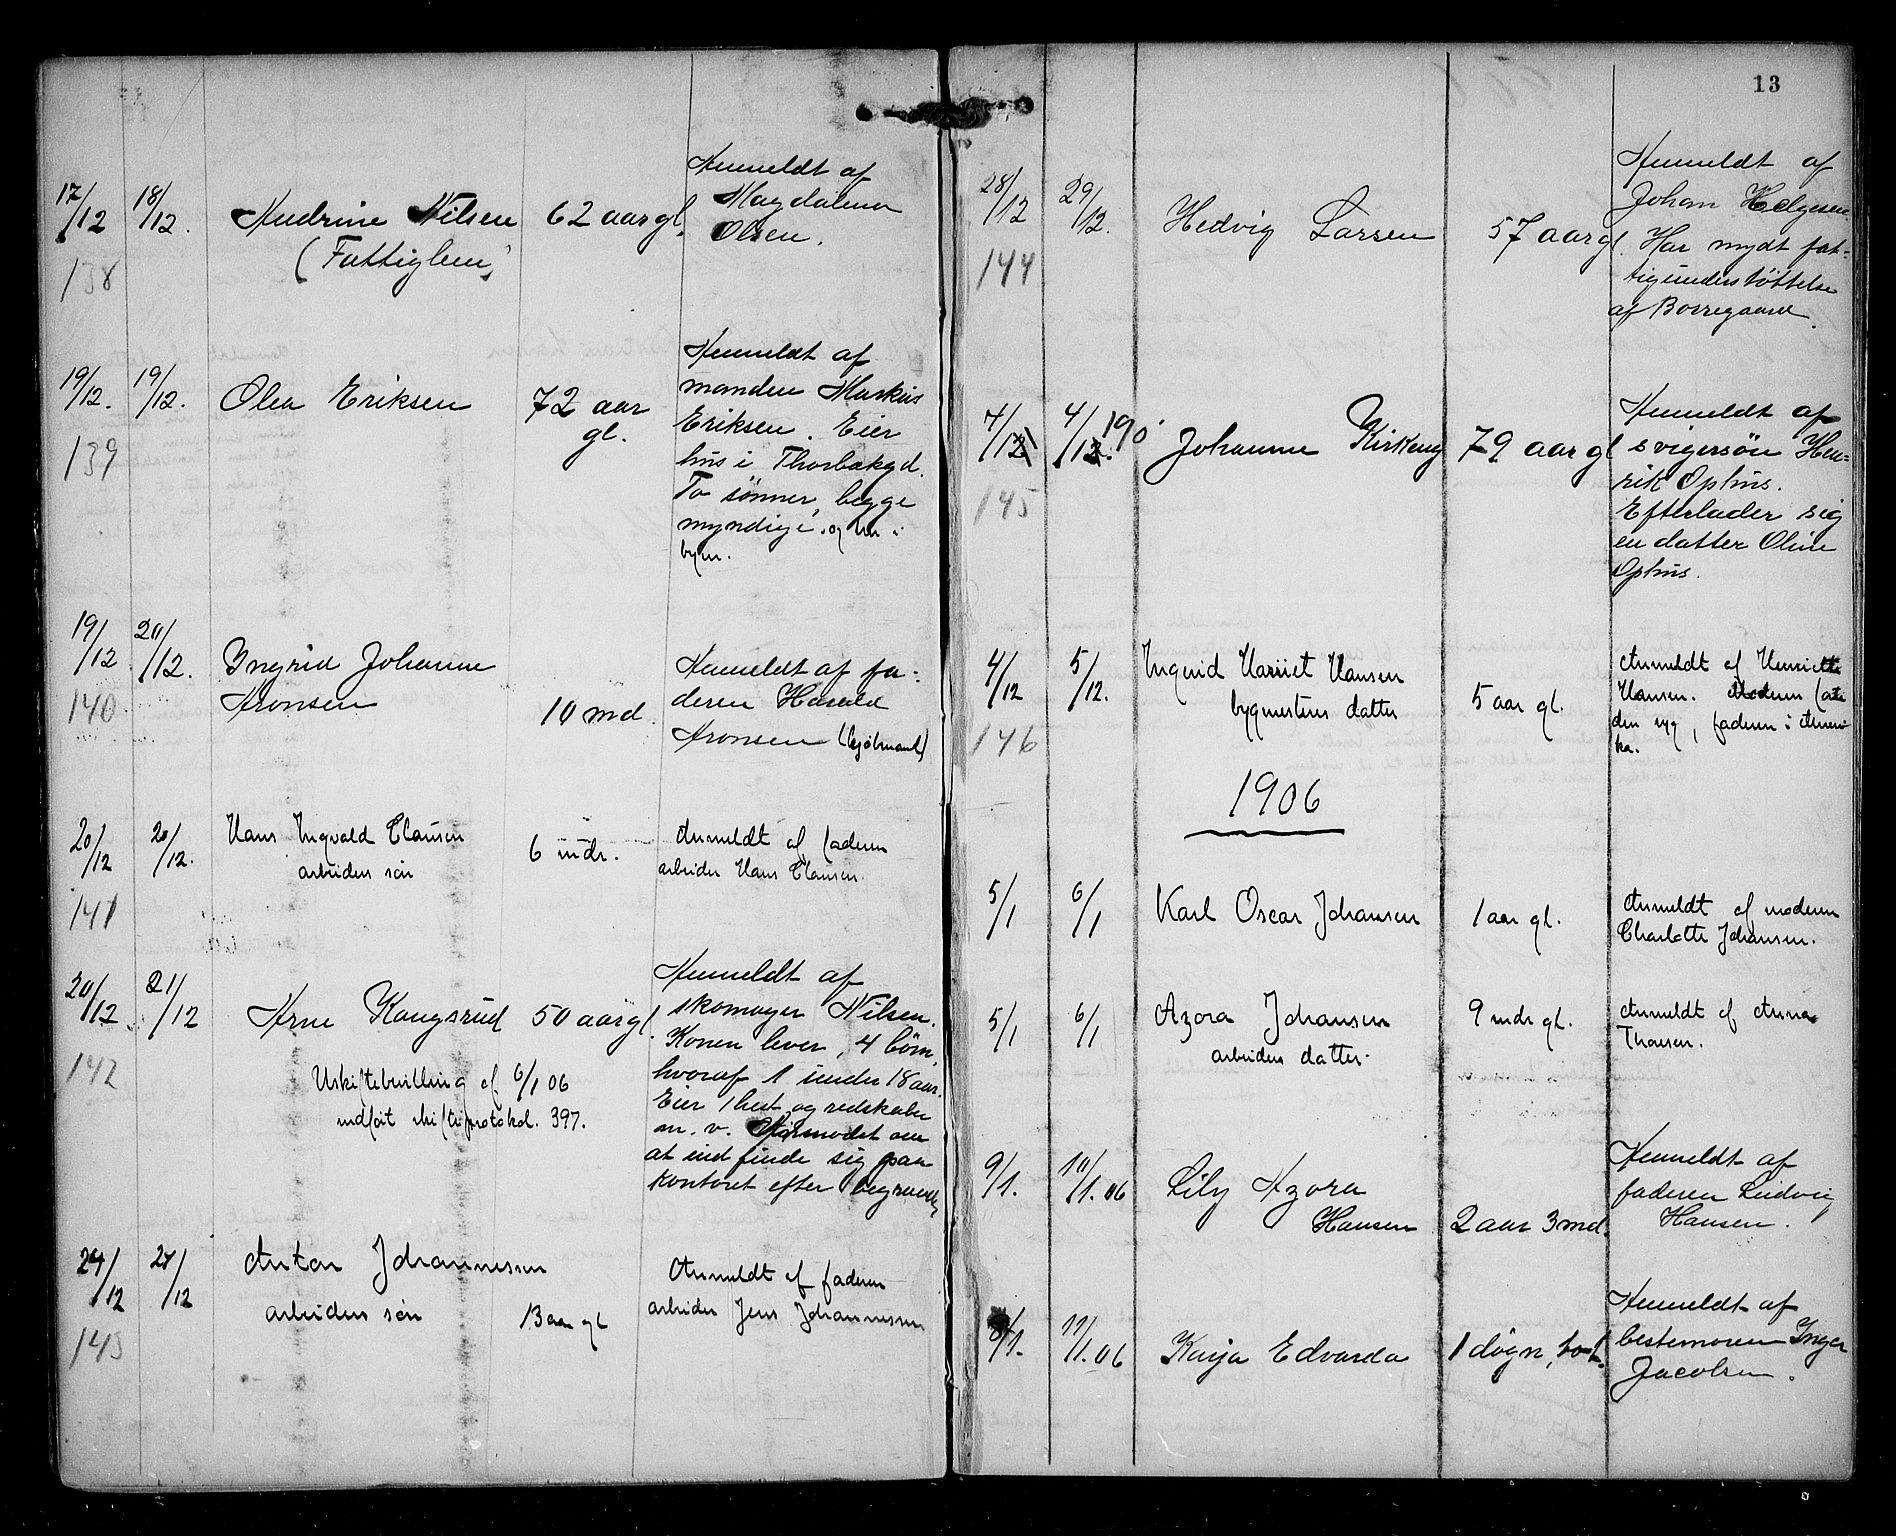 17/12 18/12. Andrine Nilsen 62 aar gl. Anmeldt af
Magdalena
Olsen.
(Fattiglem)
138
19/12. 19/12. Olea Eriksen 72 aar
gl.
Anmeldt af
manden Markus
Eriksen. Eier
hus i Thorbakgd.
To sønner, begge
myndige, og her i
byen.
139
19/12 20/12. Ingrid Johanne
Aronsen 10 md.
Anmeldt af fa-
deren Harald
Aronsen (kjøbmand)
140
20/12 20/12. Hans Ingvald Clausen
arbeiders søn
6 mdr.
Anmeldt af faderen
arbeider Hans Clausen.
141
20/12 21/12 Arne Kongsrud 50 aar gl.
Anmeldt af
skomager Nilsen.
Konen lever, 4 børn,
hvoraf 1 under 18 aar.
Eier 1 hest og redskaber
m. v. Anmodet om
at indfinde sig paa
kontoret efter begravels.
142
Uskiftebevilling af 6/1 06
indført skifteprotokol. 397.
24/12 27/12 Anton Johannessen
arbeiders søn 13 aar gl
Anmeldt af faderen
arbeider Jens Johannessen
143
13
28/12 29/12. Hedvig Larsen 57 aar gl.
Anmeldt af
Johan Helgesen.
Har nydt fat-
tigunderstøttelse
af Borregaard.
144
4/1 4/1 190 Johanne Kirkeng 79 aar gl
Anmeldt af
svigersøn Hen-
rik Ophus.
Efterlader sig
en datter Oline
Ophus.
145
4/12 5/12. Ingrid Harriet Hansen
bygmesters datter
5 aar gl.
Anmeldt af Henriette
Hansen. Moderen
syg, faderen i Ameri-
ka.
146
1906
5/1 6/1 Karl Oscar Johansen 1 aar gl.
Anmeldt af moderen
Charlotte Johansen.
5/1 6/1 Azora Johansen
arbeiders datter.
9 mdr gl.
Anmeldt af Anna
Thoresen.
9/1. 10/1. 06 Lily Azora
Hansen 2 aar 3 md.
Anmeldt af
faderen Ludvig
Hansen.
8/1. 11/1. 06 Kaija Edvarda 1 døgn,
Anmeldt af
bestemoren Inger
Jacobsen.